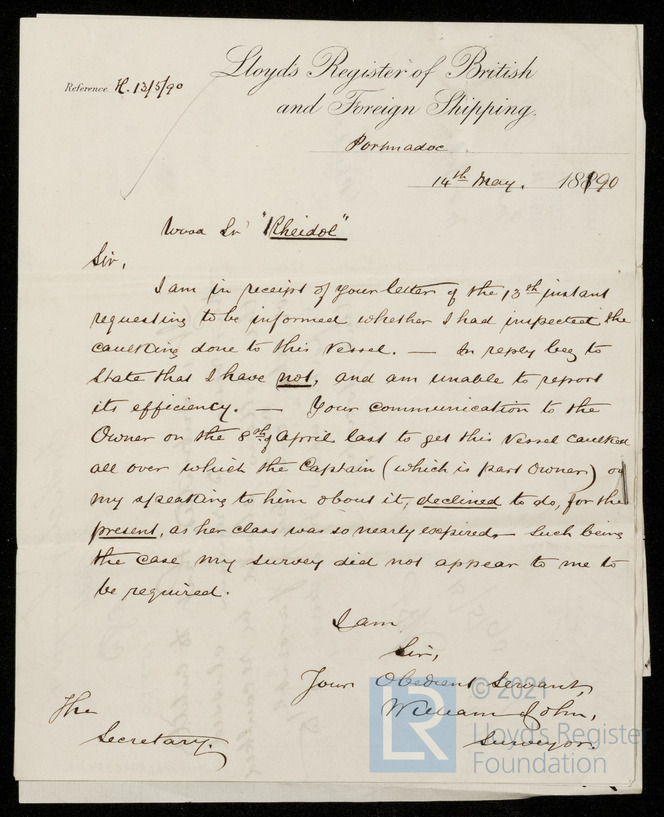 Lloyd's Register of British
Reference R. 13/5/90
and Foreign Shipping.
Portmadoc
14th May. 1890
Wood Sr "Rheidol"
Sir,
I am in receipt of your letter of the 13th instant
requesting to be informed whether I had inspected the
caulking done to this Vessel. — In reply beg to
State that I have not, and am unable to report
its efficiency. — Your communication to the
Owner on the 8th of April last to get this Vessel caulked
all over which the Captain (which is part Owner) on
my speaking to him about it, declined to do, for the
present, as her class was so nearly expired, — Such being
the case my survey did not appear to me to
be required.
I am
Sir,
Your Obedient Servant,
William John,
Surveyor.
The
Secretary.
LR
© 2021
Lloyd's Register
Foundation